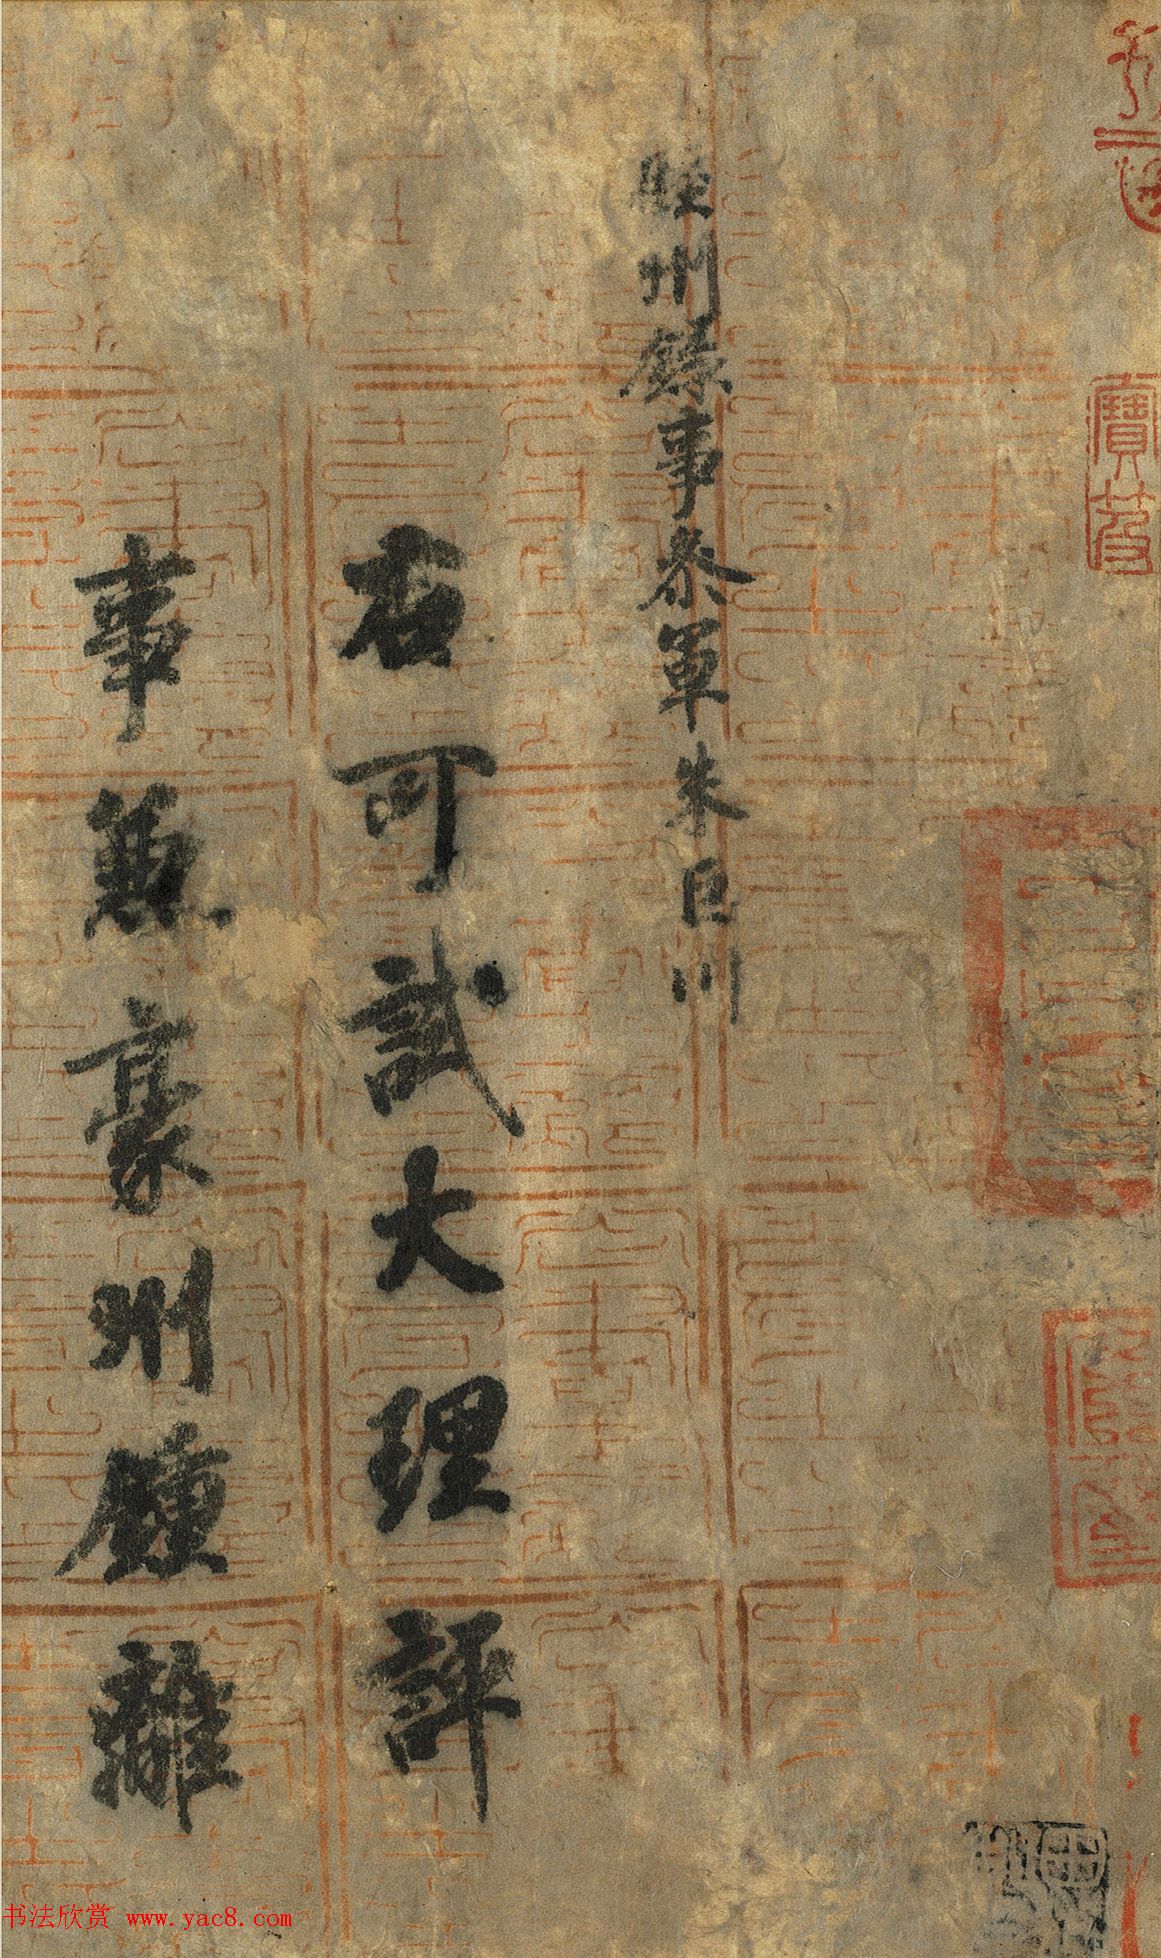 睦州錄事參軍朱巨川
右可試大理評
事兼豪州鍾離
寶笈
书法欣赏 www.yac8.com